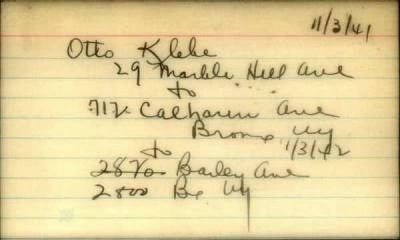 11/3/41
Otto Klebe
29 Marble Hill Ave
to " "
712 Calhoun Ave
Bronx NY
to 1/3/42
2870 Bailey Ave
2800 Bx NY